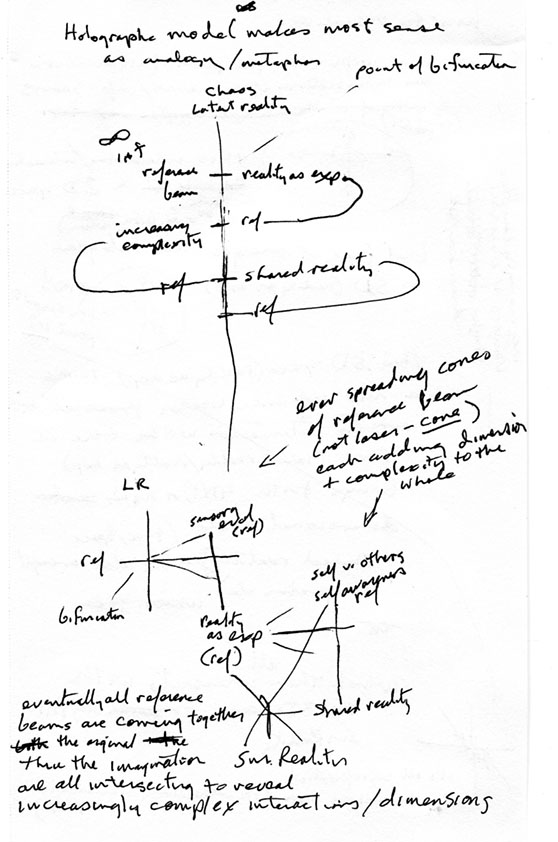 Holographic model makes most sense
as analogy/metaphor
point of bifurcation
chaos
Latent reality
∞
reference
beam
reality as exp
increasing
complexity
ref
ref
shared reality
ref
ever spreading cones
of reference beam
(not laser - cone)
each adding dimension
+ complexity to the
whole
LR
sensory
evol
(ref)
ref
bifurcation
reality
as exp
(ref)
self vs. others
self awareness
ref
shared reality
Sur. Reality
eventually all reference
beams are coming together
both the original the
thru the imagination
are all intersecting to reveal
increasingly complex interactions/dimensions